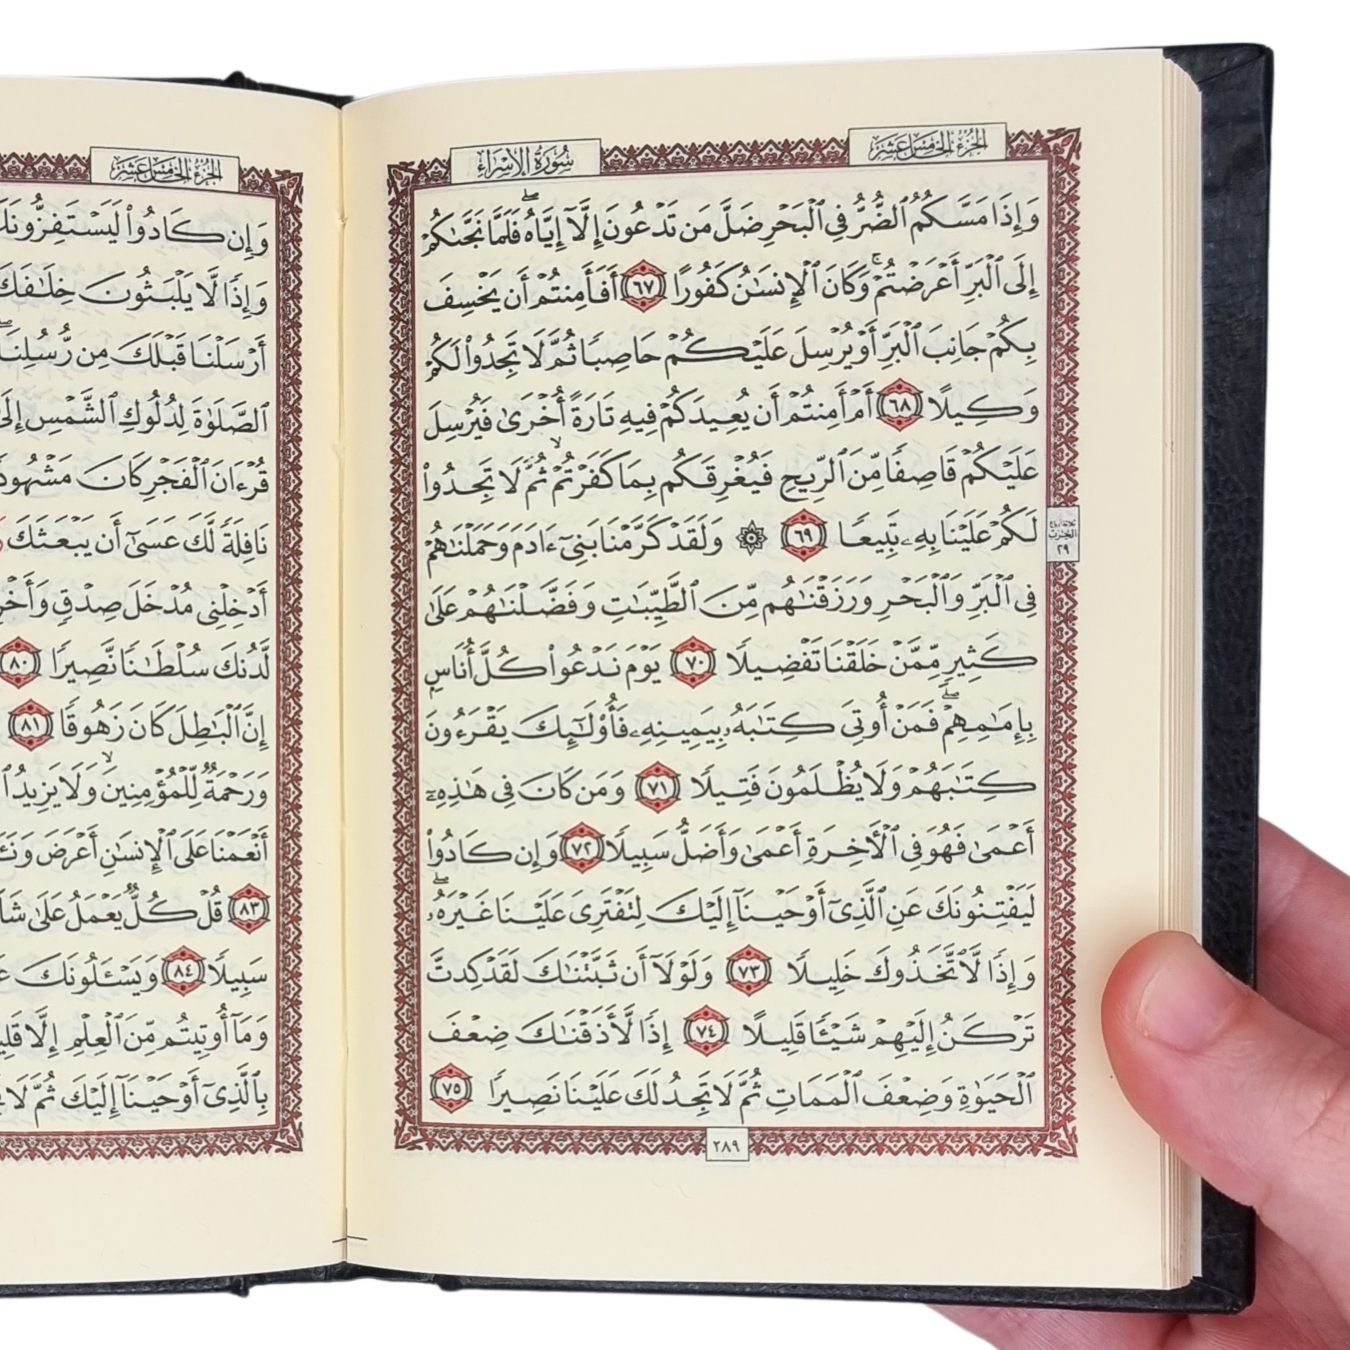 الجزء الخامس عشر
سورة الإسراء
وَإِذَا مَسَّكُمُ ٱلضُّرُّ فِي ٱلۡبَحۡرِ ضَلَّ مَن تَدۡعُونَ إِلَّآ إِيَّاهُۖ فَلَمَّا نَجَّىٰكُمۡ
إِلَى ٱلۡبَرِّ أَعۡرَضۡتُمۡۚ وَكَانَ ٱلۡإِنسَٰنُ كَفُورًا ٦٧ أَفَأَمِنتُمۡ أَن يَخۡسِفَ
بِكُمۡ جَانِبَ ٱلۡبَرِّ أَوۡ يُرۡسِلَ عَلَيۡكُمۡ حَاصِبٗا ثُمَّ لَا تَجِدُواْ لَكُمۡ
وَكِيلًا ٦٨ أَمۡ أَمِنتُمۡ أَن يُعِيدَكُمۡ فِيهِ تَارَةً أُخۡرَىٰ فَيُرۡسِلَ
عَلَيۡكُمۡ قَاصِفٗا مِّنَ ٱلرِّيحِ فَيُغۡرِقَكُم بِمَا كَفَرۡتُمۡ ثُمَّ لَا تَجِدُواْ
لَكُمۡ عَلَيۡنَا بِهِۦ تَبِيعٗا ٦٩ ۞ وَلَقَدۡ كَرَّمۡنَا بَنِيٓ ءَادَمَ وَحَمَلۡنَٰهُمۡ
فِي ٱلۡبَرِّ وَٱلۡبَحۡرِ وَرَزَقۡنَٰهُم مِّنَ ٱلطَّيِّبَٰتِ وَفَضَّلۡنَٰهُمۡ عَلَىٰ
كَثِيرٖ مِّمَّنۡ خَلَقۡنَا تَفۡضِيلٗا ٧٠ يَوۡمَ نَدۡعُواْ كُلَّ أُنَاسِۭ
بِإِمَٰمِهِمۡۖ فَمَنۡ أُوتِيَ كِتَٰبَهُۥ بِيَمِينِهِۦ فَأُوْلَٰٓئِكَ يَقۡرَءُونَ
كِتَٰبَهُمۡ وَلَا يُظۡلَمُونَ فَتِيلٗا ٧١ وَمَن كَانَ فِي هَٰذِهِۦٓ
أَعۡمَىٰ فَهُوَ فِي ٱلۡأٓخِرَةِ أَعۡمَىٰ وَأَضَلُّ سَبِيلٗا ٧٢ وَإِن كَادُواْ
لَيَفۡتِنُونَكَ عَنِ ٱلَّذِيٓ أَوۡحَيۡنَآ إِلَيۡكَ لِتَفۡتَرِيَ عَلَيۡنَا غَيۡرَهُۥۖ
وَإِذٗا لَّٱتَّخَذُوكَ خَلِيلٗا ٧٣ وَلَوۡلَآ أَن ثَبَّتۡنَٰكَ لَقَدۡ كِدتَّ
تَرۡكَنُ إِلَيۡهِمۡ شَيۡـٔٗا قَلِيلًا ٧٤ إِذٗا لَّأَذَقۡنَٰكَ ضِعۡفَ
ٱلۡحَيَوٰةِ وَضِعۡفَ ٱلۡمَمَاتِ ثُمَّ لَا تَجِدُ لَكَ عَلَيۡنَا نَصِيرٗا ٧٥
ثلاثة أرباع
الحزب
٢٩
٢٨٩
الجزء الخامس عشر
وَإِن كَادُواْ لَيَسۡتَفِزُّونَكَ
وَإِذٗا لَّا يَلۡبَثُونَ خِلَٰفَكَ
أَرۡسَلۡنَا قَبۡلَكَ مِن رُّسُلِنَا
ٱلصَّلَوٰةَ لِدُلُوكِ ٱلشَّمۡسِ إِلَىٰ
قُرۡءَانَ ٱلۡفَجۡرِ كَانَ مَشۡهُودٗا
نَافِلَةٗ لَّكَ عَسَىٰٓ أَن يَبۡعَثَكَ
أَدۡخِلۡنِي مُدۡخَلَ صِدۡقٖ
لَّدُنكَ سُلۡطَٰنٗا نَّصِيرٗا ٨٠
إِنَّ ٱلۡبَٰطِلَ كَانَ زَهُوقٗا ٨١
وَرَحۡمَةٞ لِّلۡمُؤۡمِنِينَ وَلَا يَزِيدُ
أَنۡعَمۡنَا عَلَى ٱلۡإِنسَٰنِ أَعۡرَضَ
٨٣ قُلۡ كُلّٞ يَعۡمَلُ عَلَىٰ
سَبِيلٗا ٨٤ وَيَسۡـَٔلُونَكَ
وَمَآ أُوتِيتُم مِّنَ ٱلۡعِلۡمِ إِلَّا
بِٱلَّذِيٓ أَوۡحَيۡنَآ إِلَيۡكَ ثُمَّ لَا